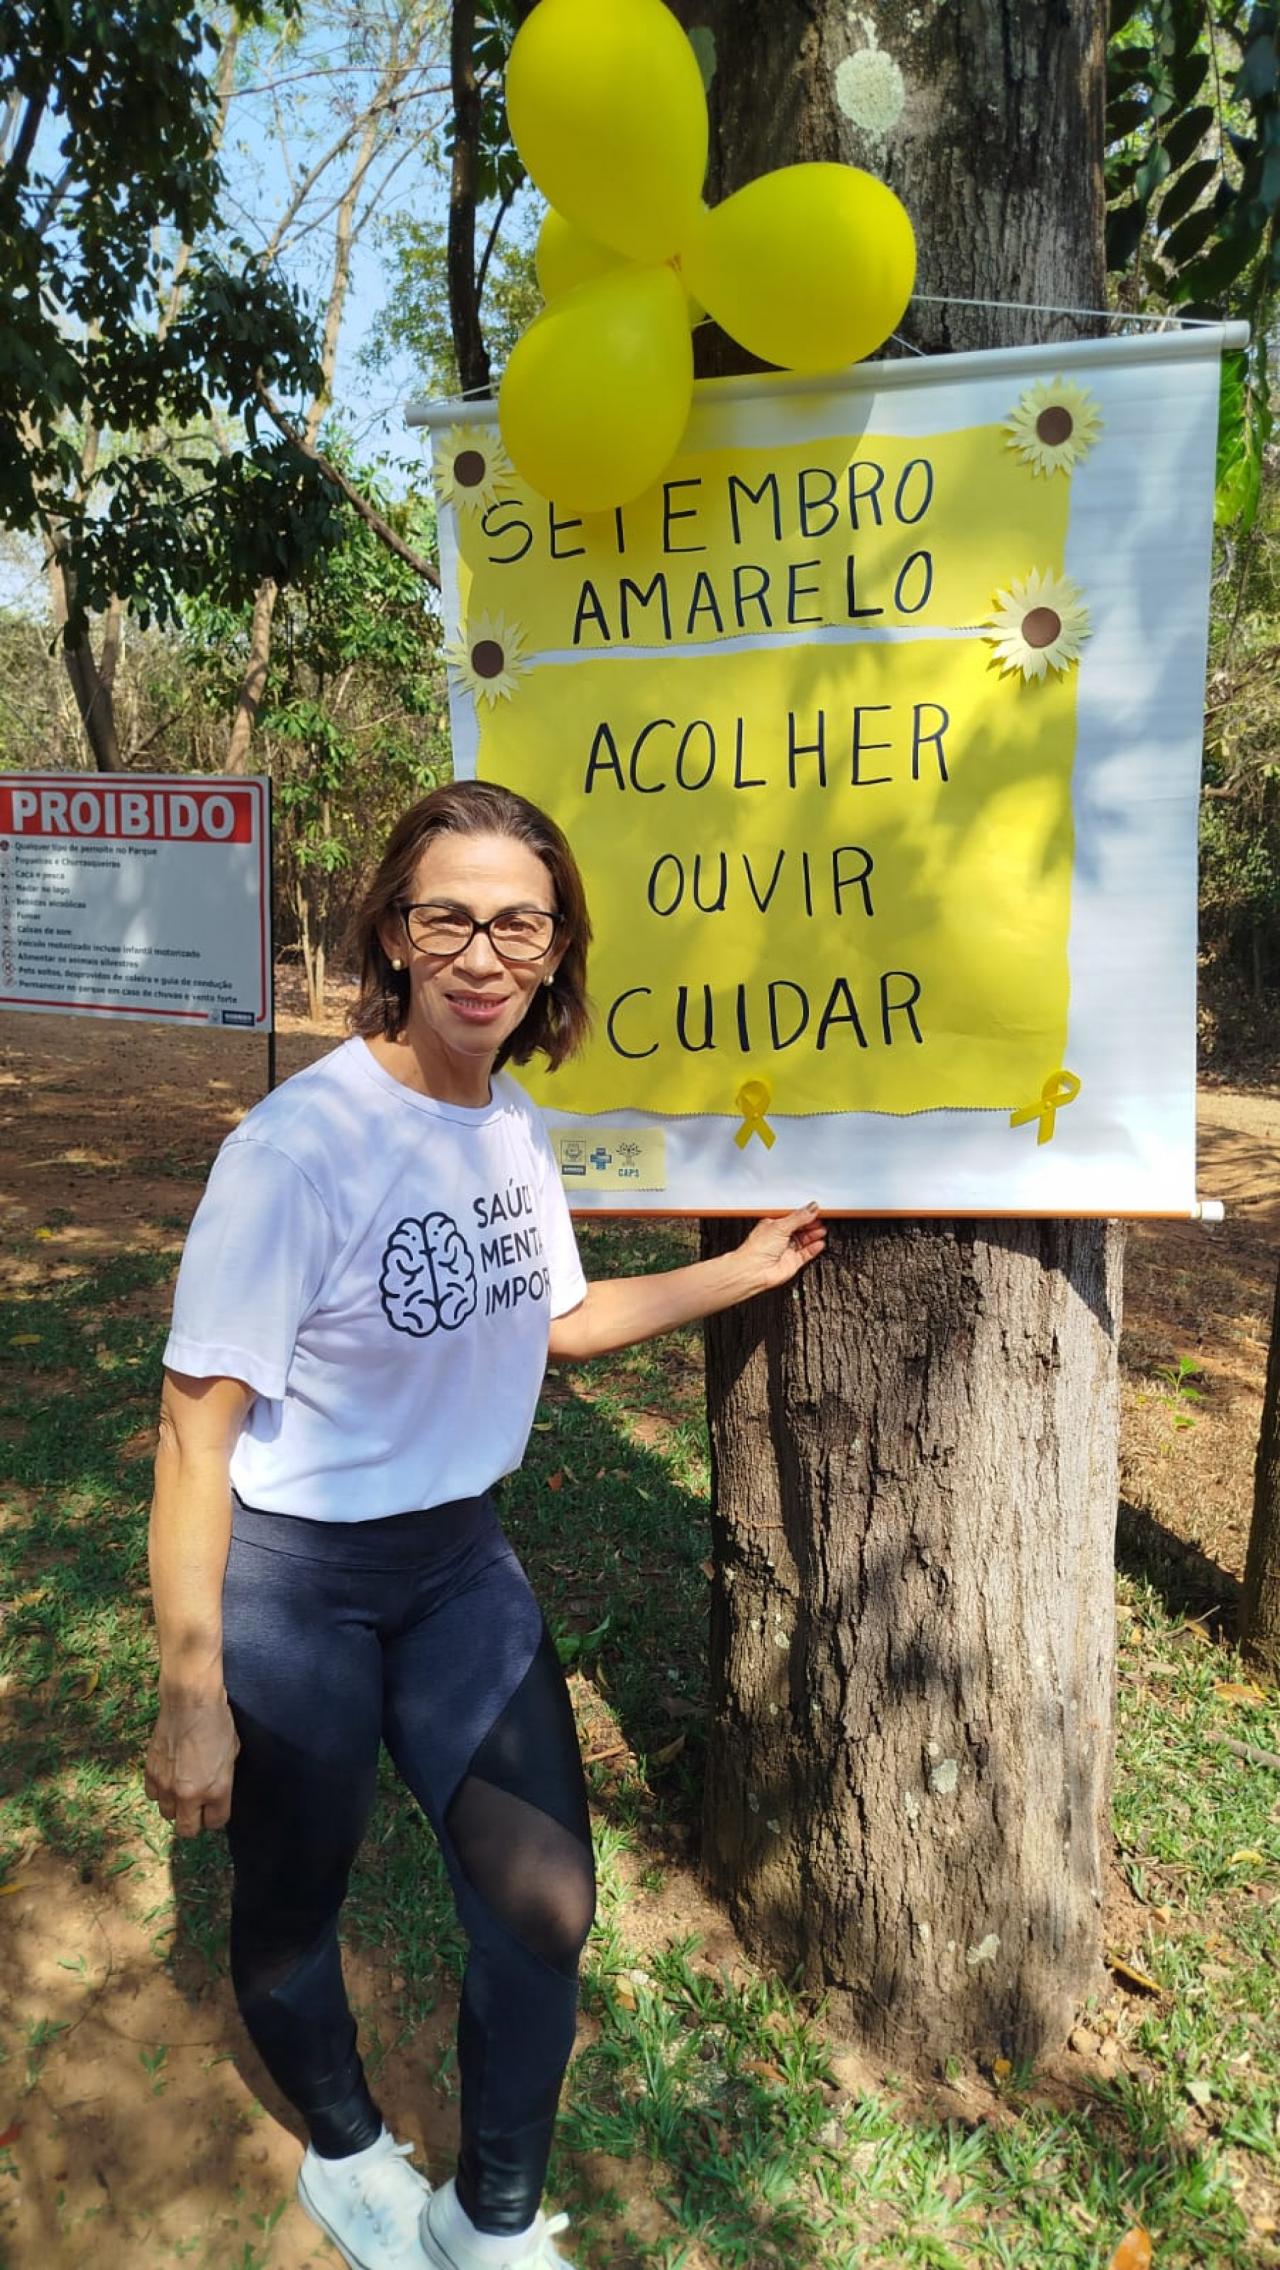 SETEMBRO
AMARELO
ACOLHER
OUVIR
CUIDAR
CAPS
PROIBIDO
Qualquer tipo de pernoite no Parque
Fogueiras e Churrasqueiras
Caça e pesca
Nadar no lago
Bebidas alcoólicas
Fumar
Caixas de som
Veículo motorizado incluso infantil motorizado
Alimentar os animais silvestres
Pets soltos, desprovidos de coleira e guia de condução
Permanecer no parque em caso de chuvas e vento forte
SAÚD
MENTA
IMPOR